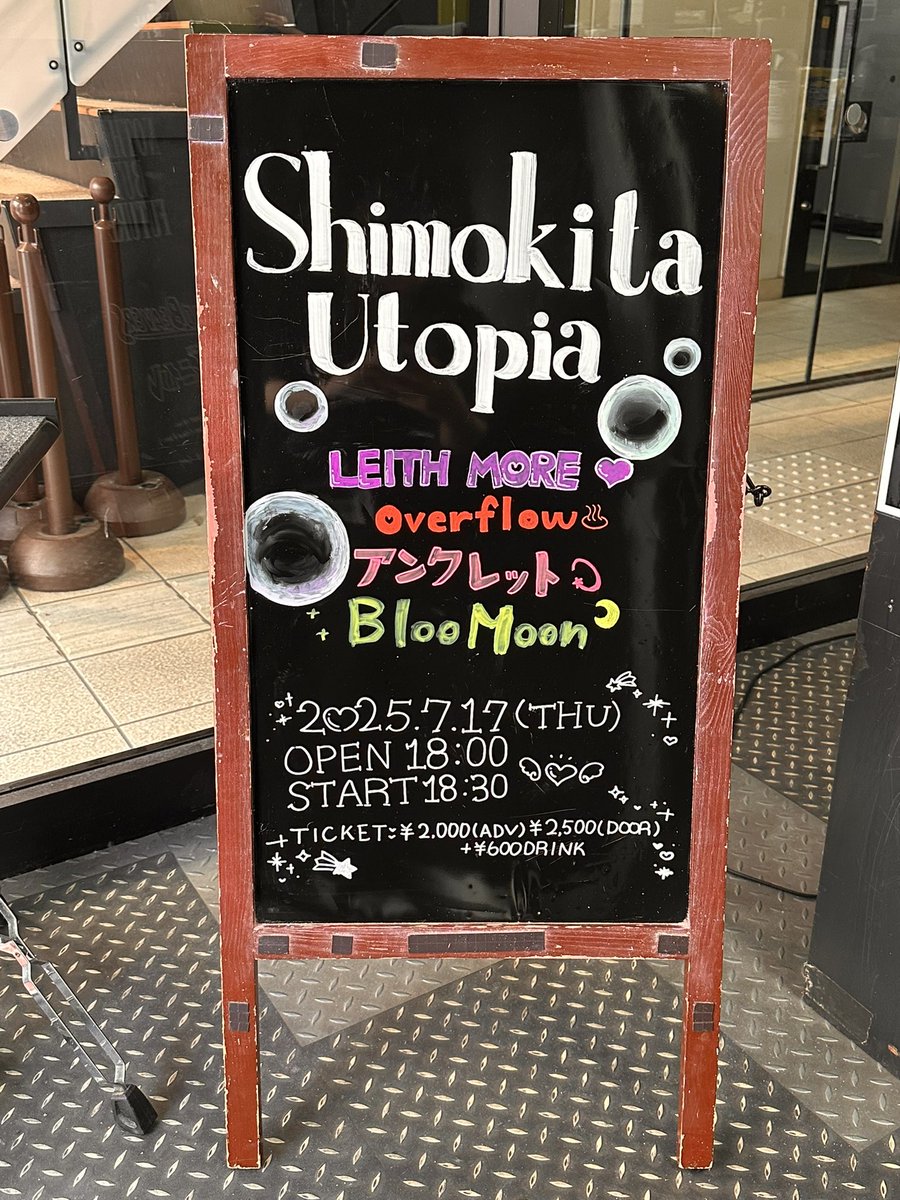 Shimokita
Utopia
LEITH MORE
Overflow
アンクレット
BlooMoon
2025.7.17(THU)
OPEN 18:00
START 18:30
TICKET:¥2.000(ADV)¥2,500(DOOR)
+¥600DRINK